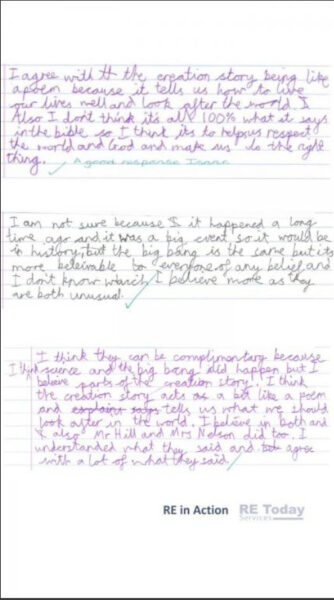 I agree with the creation story being like
a poem because it tells us how to live
our lives well and look after the world. I
Also I don't think it's all 100% what it says
in the bible so I think its to help us respect
the world and God and make us do the right
thing. A good response Isaac
I am not sure because it happened a long
time ago and it was a big event so it would be
in history, but the big bang is the same but its
more beleivable to everyone of any belief and
I don't know which I believe more as they
are both unusual.
I think they can be complimentary because
I think science and the big bang did happen but I
beleive parts of the creation story. I think
the creation story acts as a bit like a poem
and explains says tells us what we should
look after in the world. I believe in both and
I also Mr Hill and Mrs Nelson did too. I
understanded what they said and agree
with a lot of what they said.
RE in Action
RE Today
Services